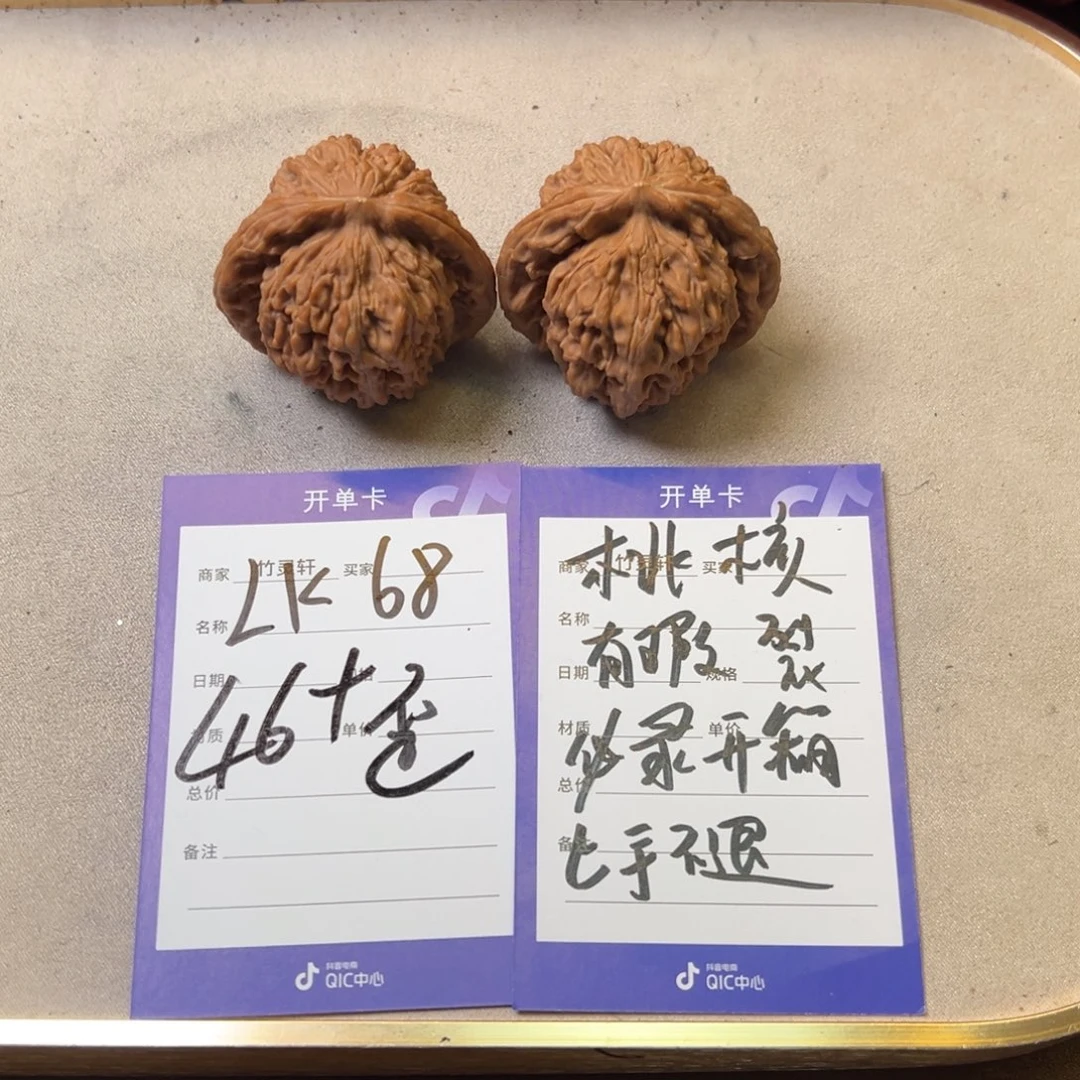 开单卡
商家 竹灵轩 买家
LK 68
名称
日期
46+歪
材质 单价
总价
备注
抖音电商
QIC中心
开单卡
商家 竹灵轩 买家
桃核
名称
有瑕 裂
日期 规格
材质 单价
必录开箱
总价
备注
上手不退
抖音电商
QIC中心